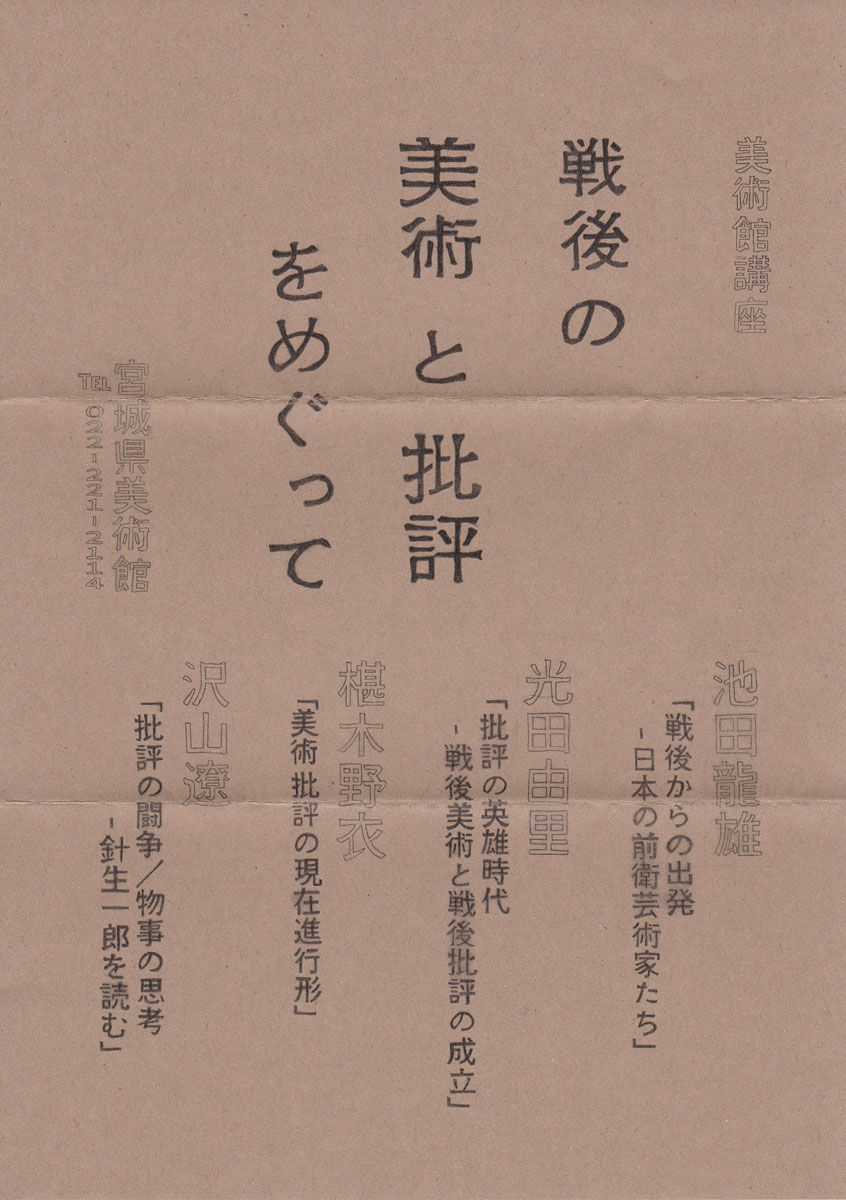 美術館講座
戦後の
美術と批評
をめぐって
宮城県美術館
TEL 022-221-2114
池田龍雄
「戦後からの出発
-日本の前衛芸術家たち」
光田由里
「批評の英雄時代
-戦後美術と戦後批評の成立」
椹木野衣
「美術批評の現在進行形」
沢山遼
「批評の闘争/物事の思考
-針生一郎を読む」